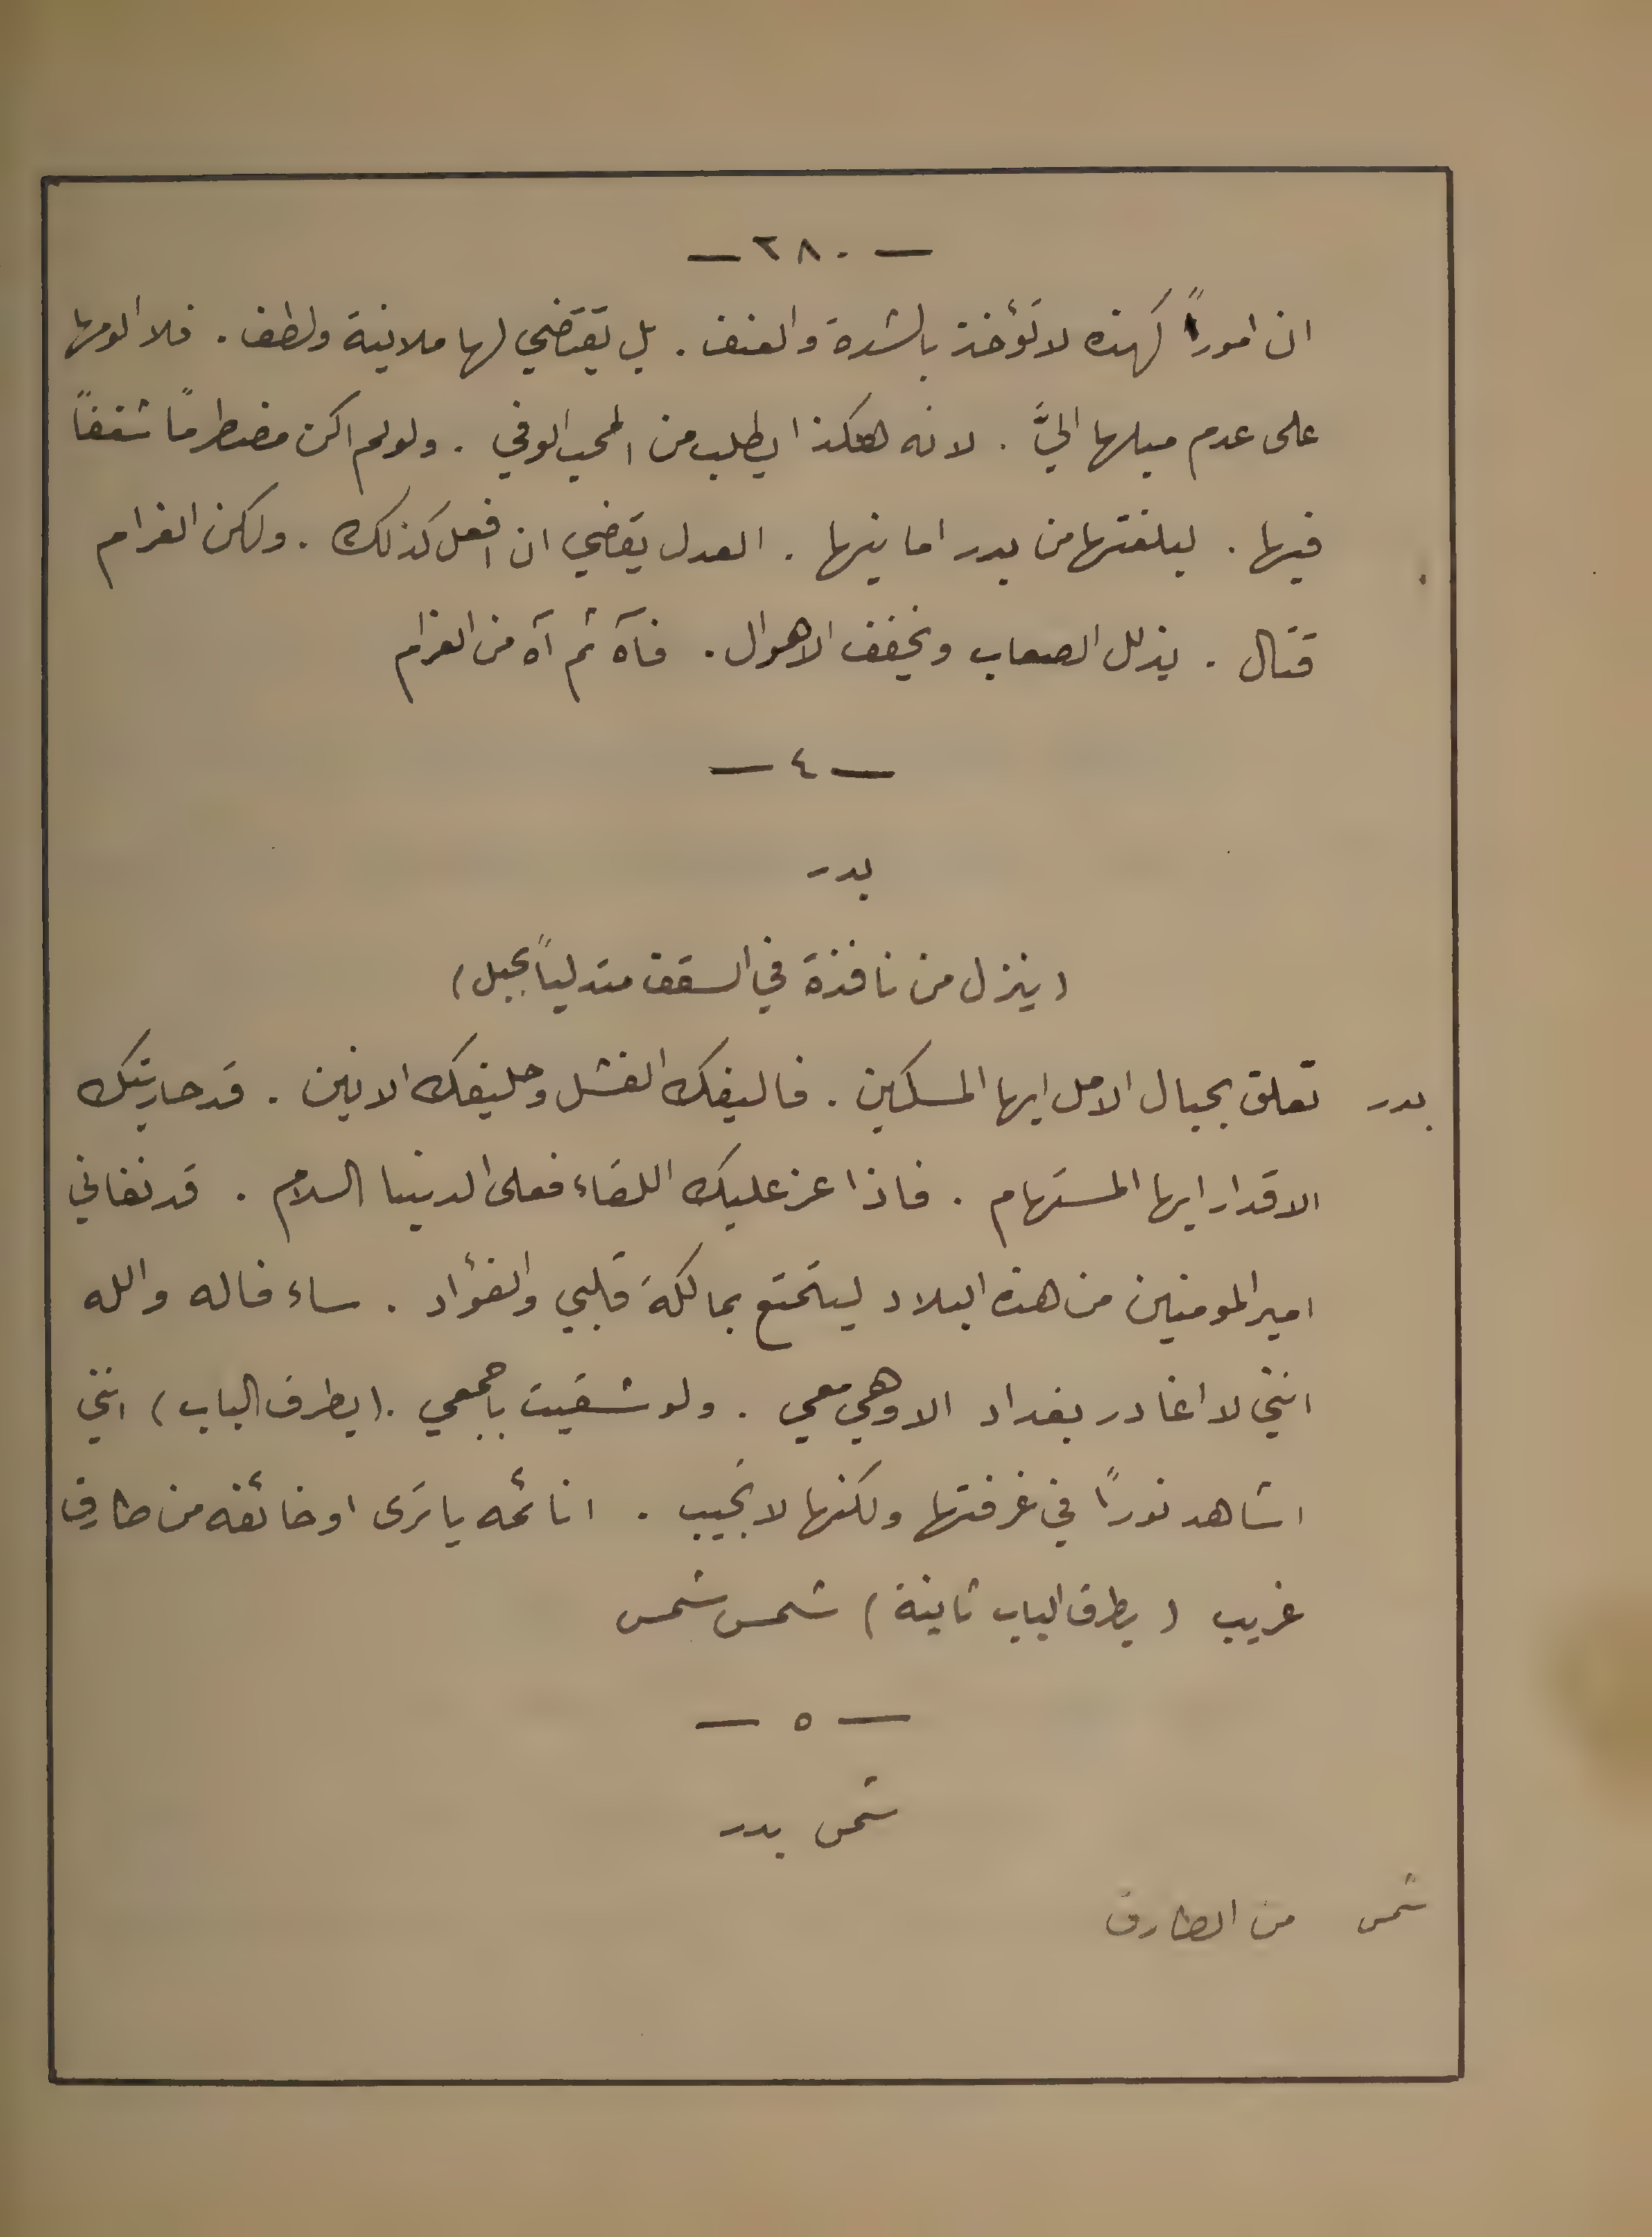 — ٢٨٠ —
ان اموراً كهذه لا تؤخذ بالشدة والعنف . بل تقتضي لها ملاينة ولطف . فلا الومها
على عدم ميلها اليَّ . لانه هكذا يطلب من المحب الوفي . ولو لم اكن مضطرماً شغفاً
فيها . لبلغتها من بدر امانيها . العدل يقضي ان افعل كذلك . ولكن الغرام
قتال . يذلل الصعاب ويخفف الاهوال . فآه ثم آه من الغرام
— ٤ —
بدر
( ينزل من نافذة في السقف متدلياً بحبل )
بدر تعلق بحبال الامل ايها المسكين . فاليفك الفشل وحليفك الانين . قد حاربتك
الاقدار ايها المستهام . فاذا عز عليك اللقاء فعلى الدينا السلام . قد نفاني
امير المومنين من هذه البلاد ليتمتع بمالكة قلبي والفؤاد . ساء فاله والله
انني لا اغادر بغداد الا وهي معي . ولو شقيت باجمعي . ( يطرق الباب ) انني
اشاهد نوراً في غرفتها ولكنها لا تجيب . انائمه يا ترى او خائفه من طارق
غريب ( يطرق الباب ثانية ) شمس شمس
— ٥ —
شمس بدر
شمس من الطارق